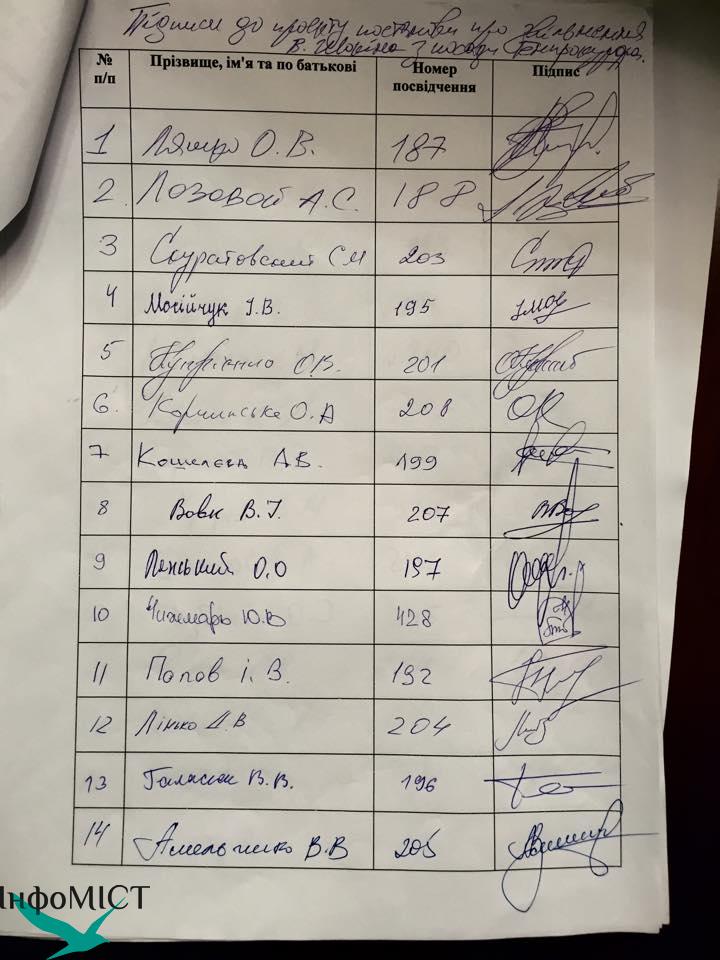 Підписи до проєкту постанови про звільнення
В. Шокіна з посади Генпрокурора.
№ п/п Прізвище, ім'я та по батькові Номер посвідчення Підпис
1 Ляшко О.В. 187
2. Лозовой А.С. 188
3 Скуратовський С М 203
4 Мосійчук І.В. 195
5 Купрієнко О.В. 201
6. Корчинська О.А 208
7 Кошелєва А.В. 199
8 Вовк В.І. 207
9 Ленський О.О 197
10 Чижмарь Ю.В 428
11 Попов і. В. 192
12 Лінько Д.В 204
13 Галасюк В.В. 196
14 Амельченко В.В 205
ІнфоМІСТ